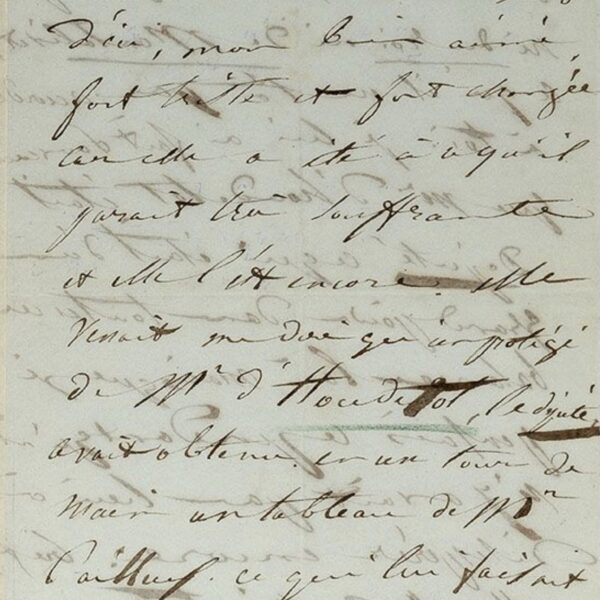 d'ici, mon bien aimé,
fort triste et fort changée
car elle a été à ce qu'il
parait très souffrante
et elle l'est encore. Elle
venait me dire qu'un protégé
de Mr d'Houdetot, le député,
avait obtenu en un tour de
main un tableau de Mr
Cailleux. ce qui lui faisait